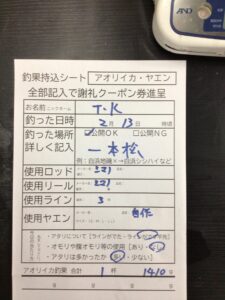 AND
釣果持込シート アオリイカ・ヤエン
全部記入で謝礼クーポン券進呈
お名前 ニックネーム T.K
釣った日時 2月13日 時頃
釣った場所 ☑公開OK □公開NG
詳しく記入 一本松
例：白浜地磯×→白浜シシハイなど
使用ロッド
使用リール
使用ライン 3
使用ヤエン 自作
・アタリについて
・オモリや腹オモリ等の使用【あり・なし】
・アタリは多かったか【多い・少ない】
アオリイカ釣果 合計 1杯 1410g